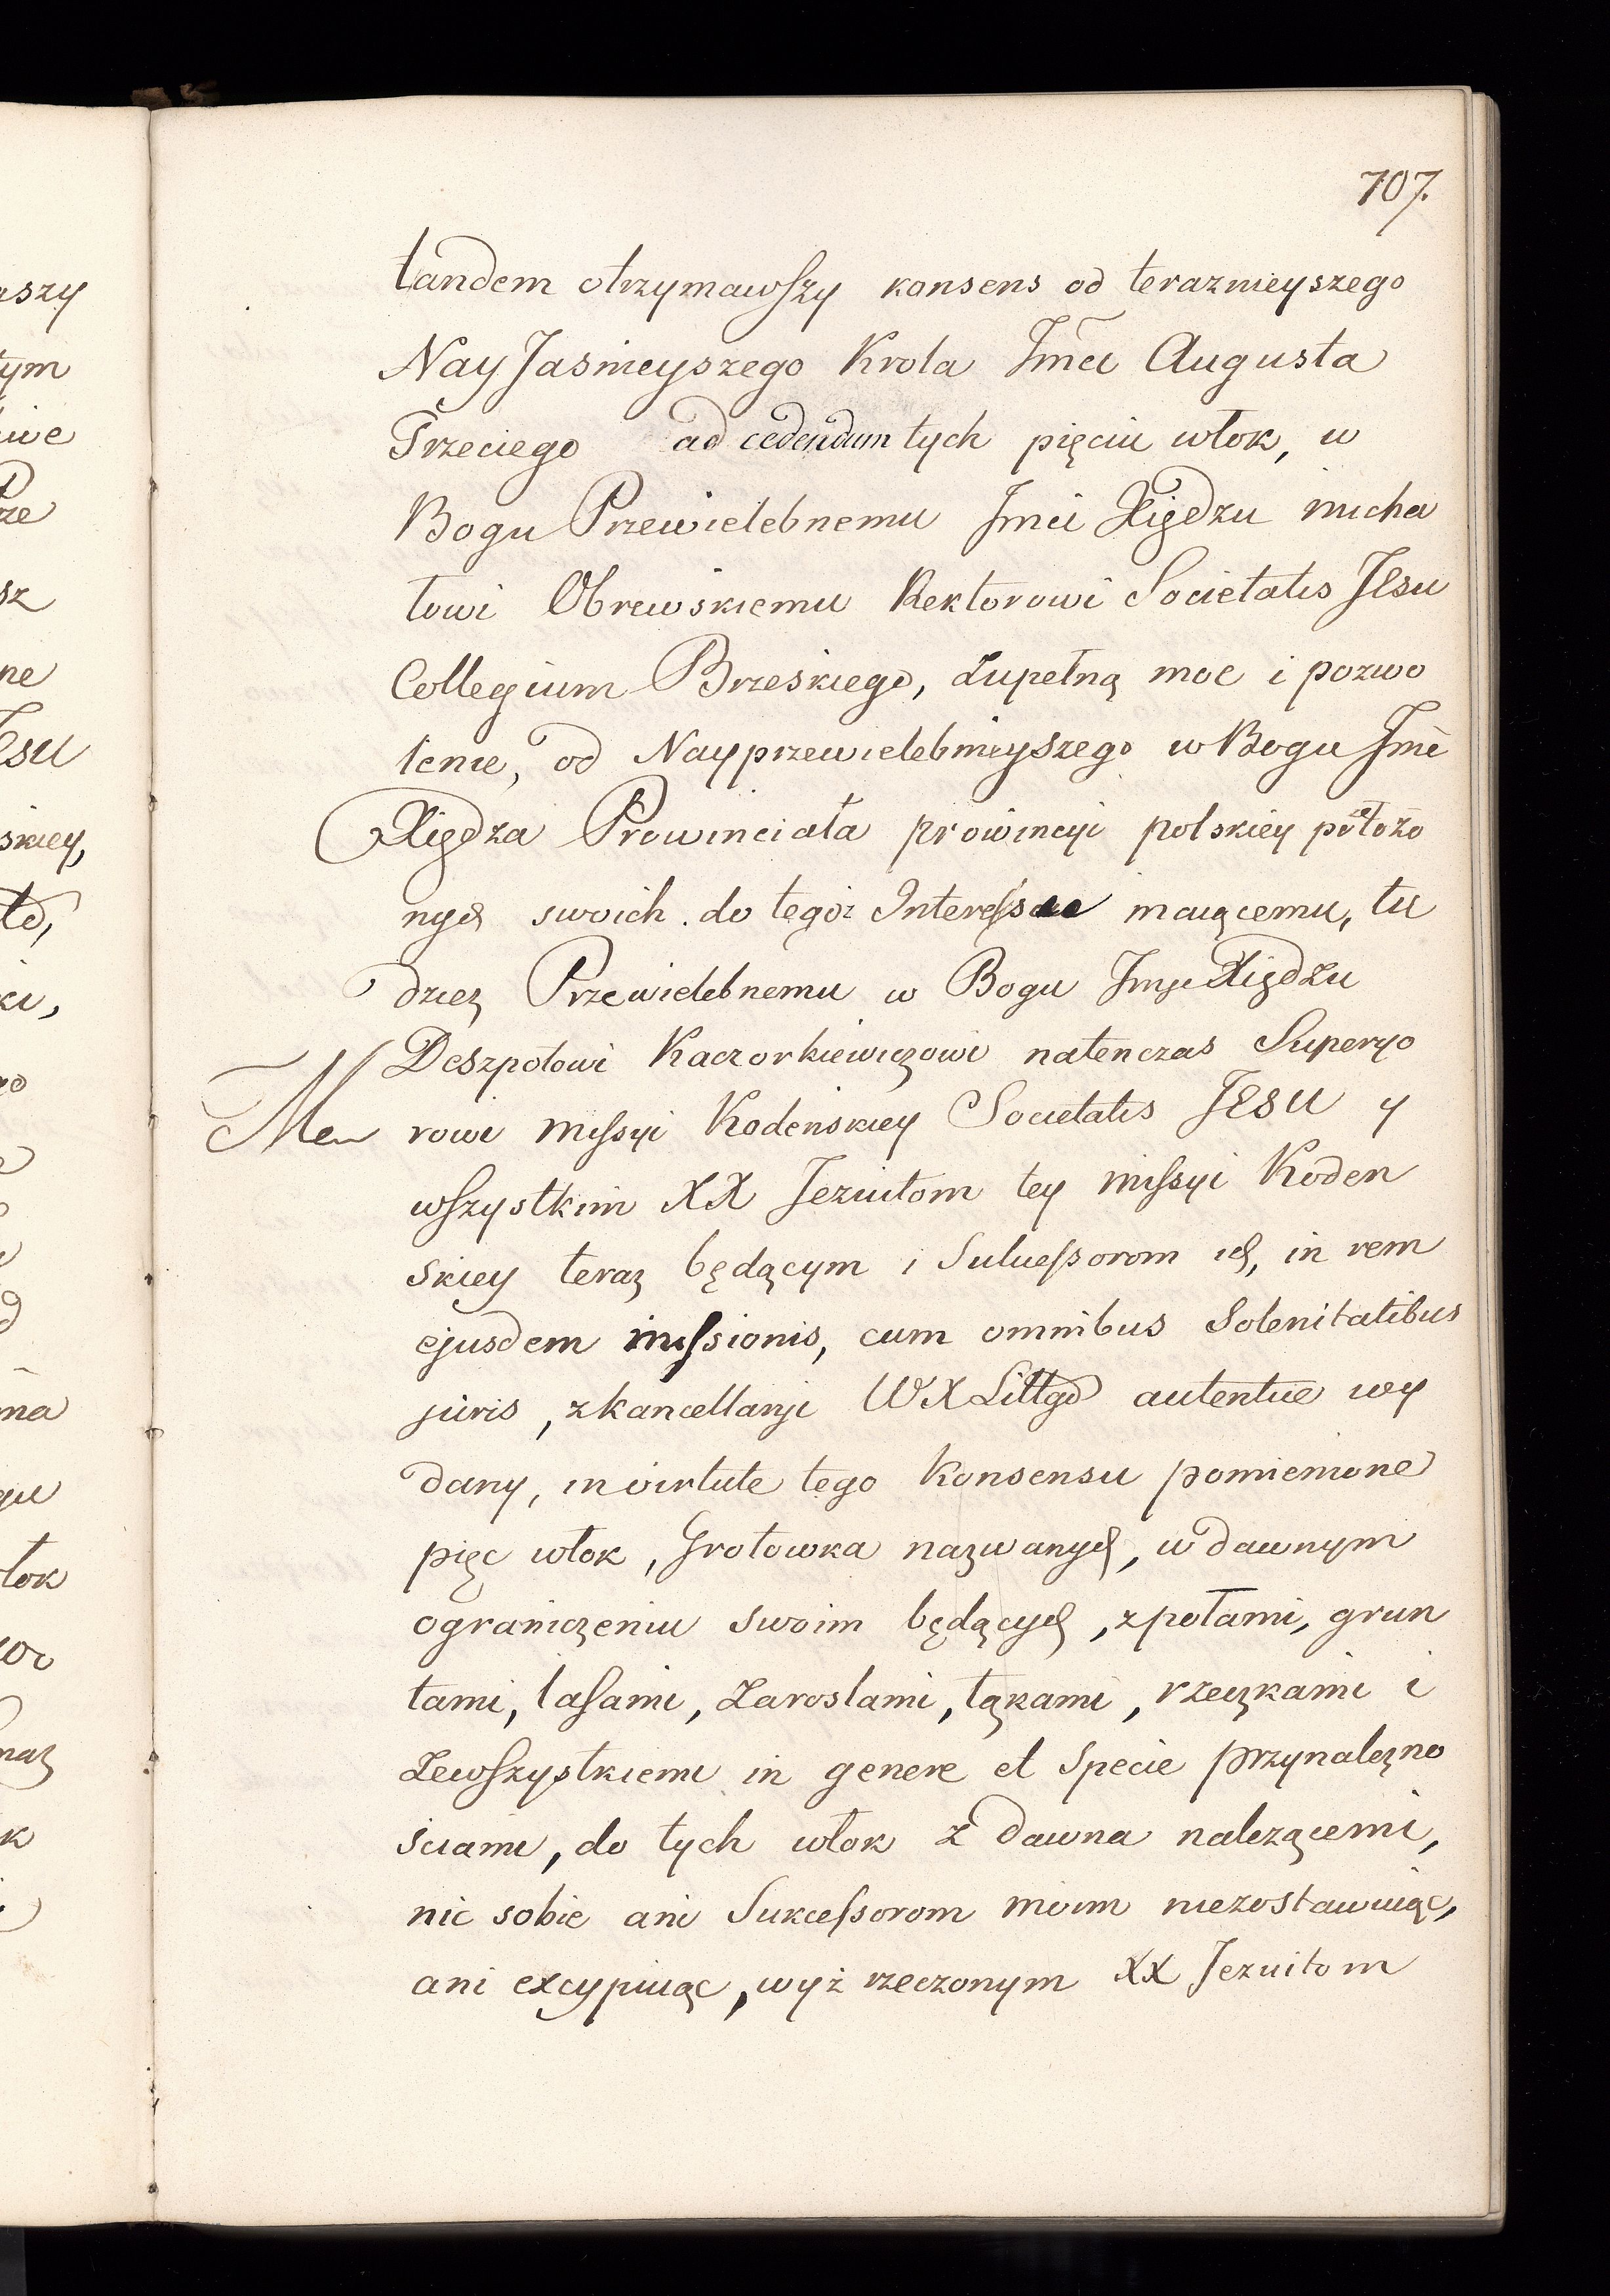 707.
tandem otrzymawszy konsens od teraznieyszego
Nay Jasnieyszego Krola Jmći Augusta
Trzeciego ad cedendum tych pięciu włok, w
Bogu Przewielebnemu Jmci Xiędzu micha
łowi Obrewskiemu Rektorowi Societatis JEsu
Collegium Brzeskiego, zupełną moc i pozwo
lenie, od Nayprzewielebnieyszego w Bogu Jmć
Xiędza Prowinciała prowincyi polskiey położo
nych swoich do tegoż Interessu maiącemu, tu
dziez Przewielebnemu w Bogu Jmci Xiędzu
Deszpotowi Kaczorkiewiczowi natenczas Superyo
rowi missyi Kodenskiey Societatis JESU y
wszystkim XX Jezuitom tey missyi Koden
skiey teraz będącym i Sukcessorom ich, in rem
ejusdem missionis, cum omnibus Solenitatibus
juris, z kancellaryi WXLittgo autentice wy
dany, in virtute tego Konsensu pomienione
pięc włok, Grotowka nazwanych, w dawnym
ograniczeniu swoim będących, z połami, grun
tami, lasami, zaroslami, łąkami, rzeczkami i
zewszystkiemi in genere et specie przynalezno
ściami, do tych włok z dawna nalezącemi,
nic sobie ani Sukcessorom moim niezostawuiąc,
ani excypuiąc, wyż rzeczonym XX Jezuitom